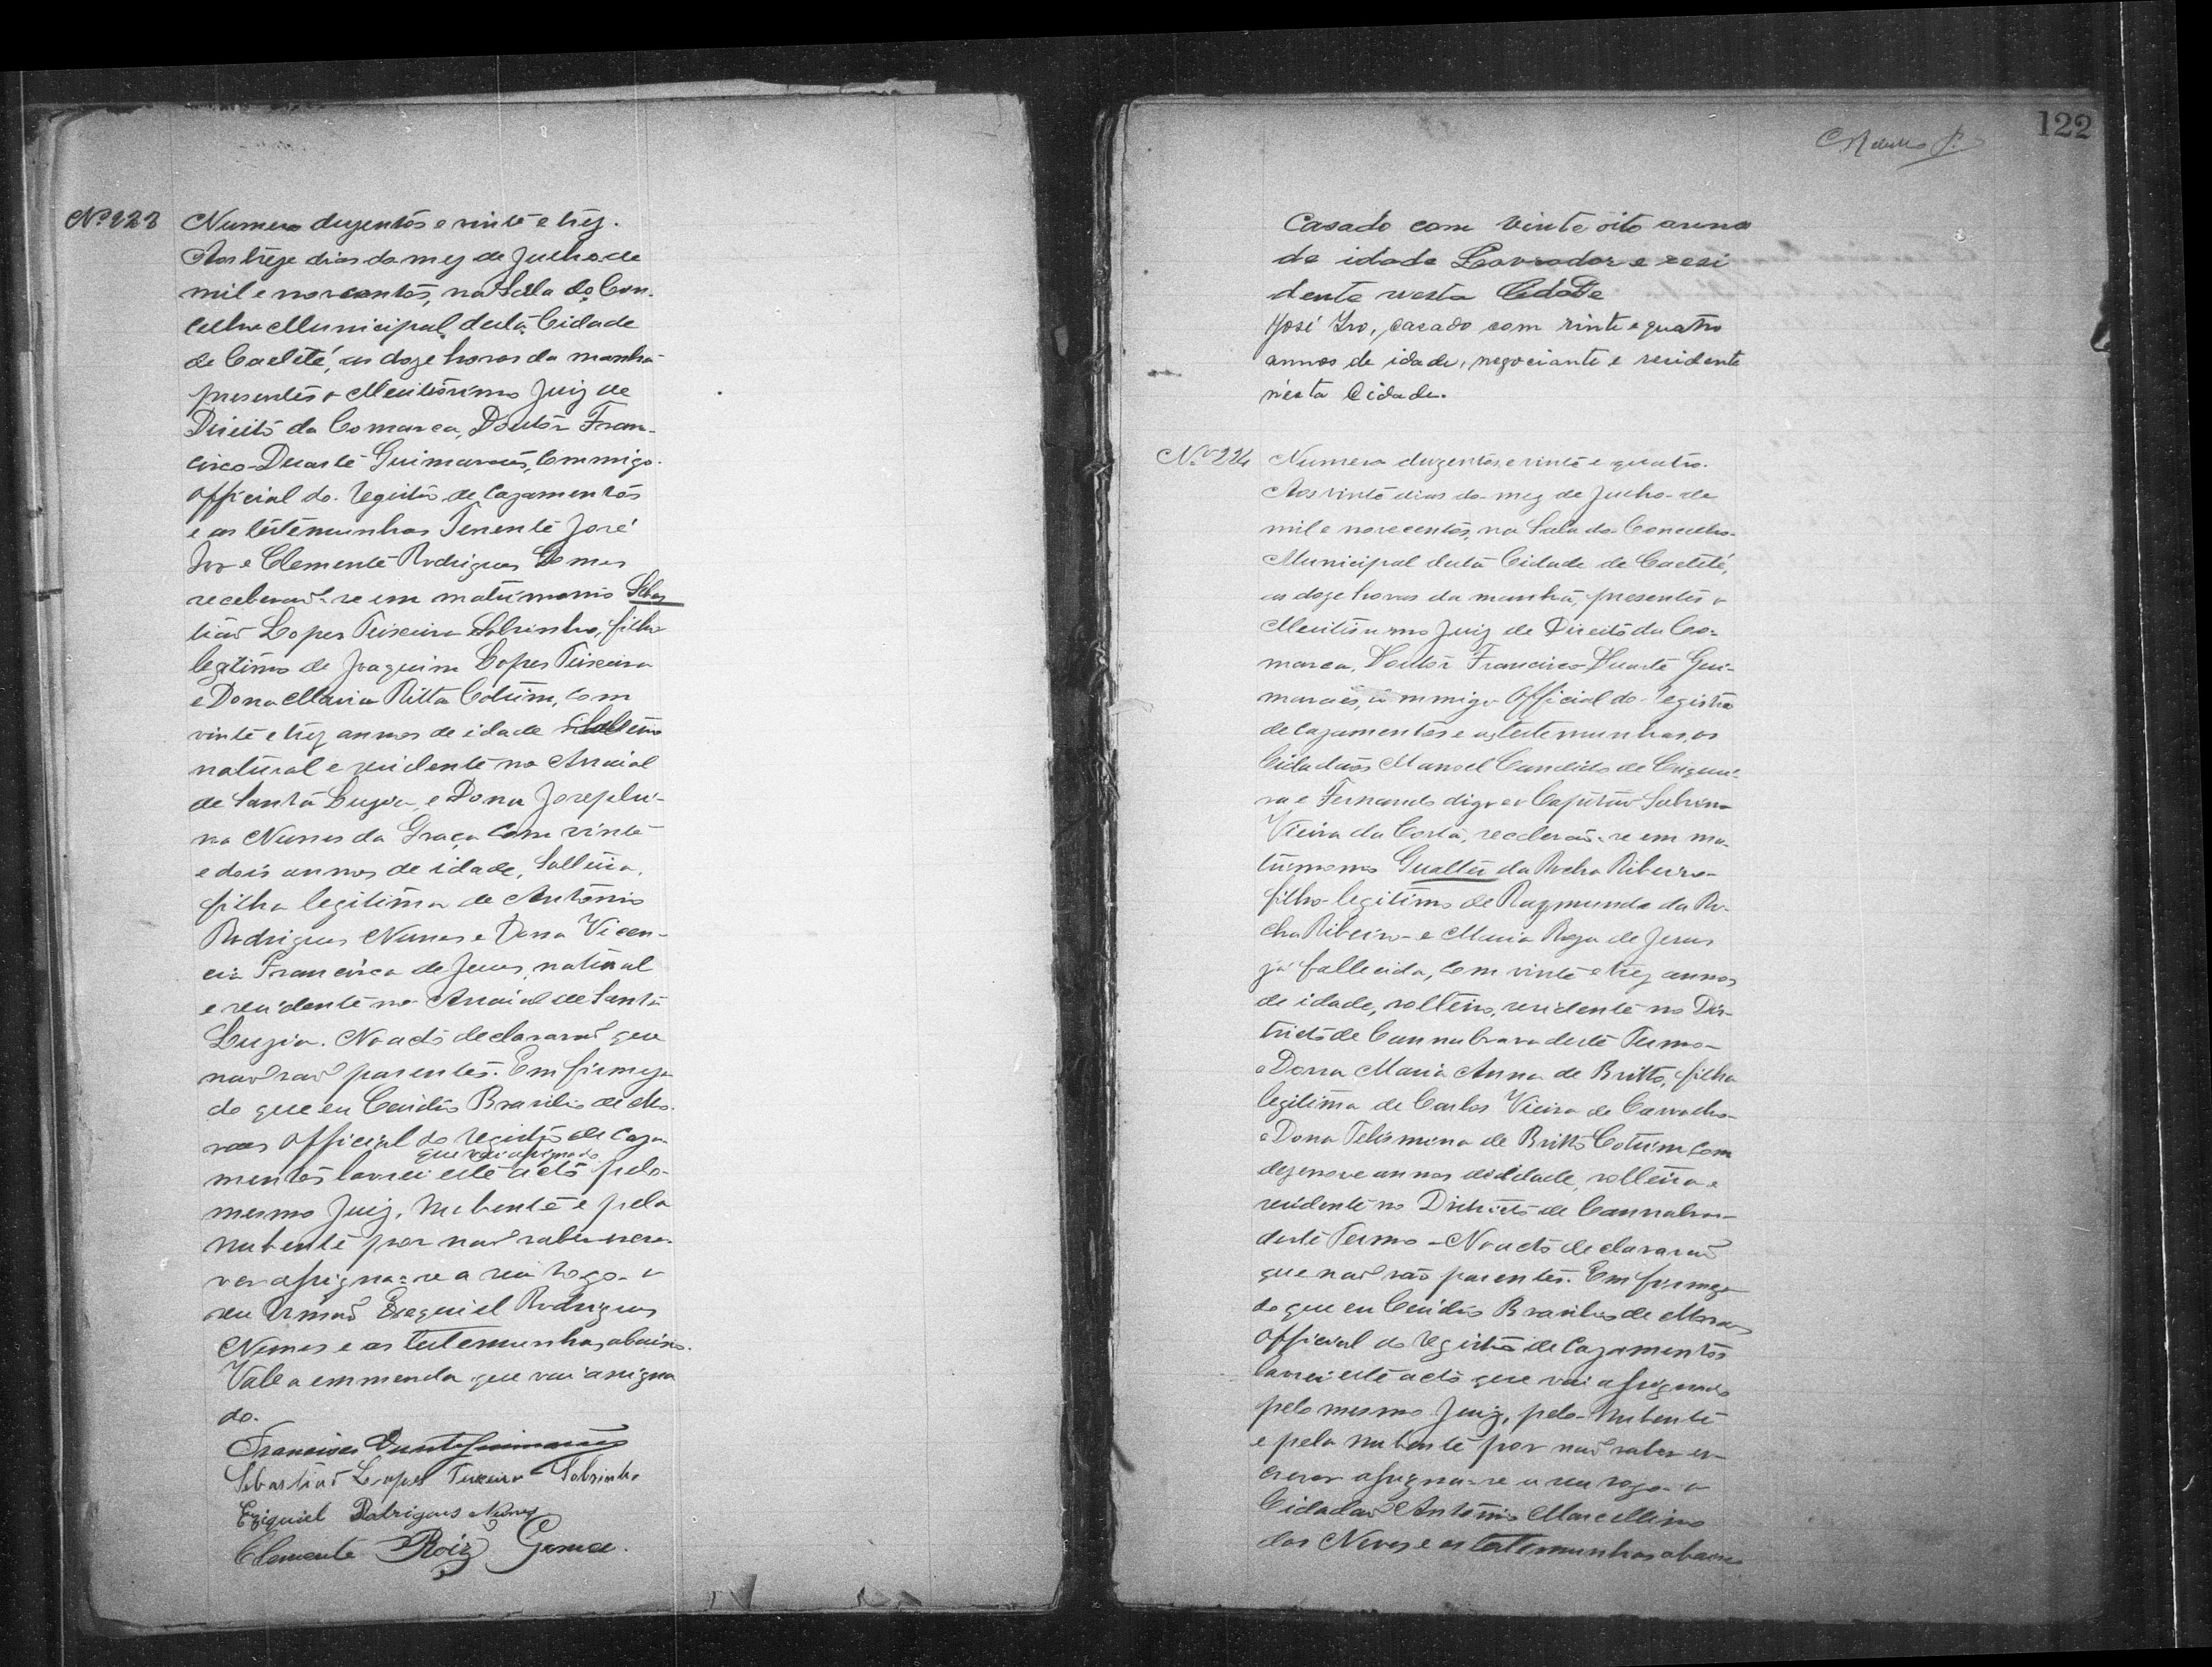 Nº 223 Numero duzentos e vinte e trez.
Aos treze dias do mez de Julho de
mil e novecentos, na Salla do Con-
celho Municipal desta Cidade
de Caeteté, as doze horas da manhã
presentes o Meritissimo Juiz de
Direito da Comarca, Doutor Fran-
cisco Duarte Guimarães, Commigo
Official do Registro de Cazamentos
e as testemunhas Tenente José
Ivo e Clemente Rodrigues Gomes
receberaõ-se em matrimonio Sebas
tiaõ Lopes Teixeira Sobrinho, filho
legitimo de Joaquim Lopes Teixeira
e Dona Maria Ritta Cotrim, com
vinte e trez annos de idade Solteiro
natural e residente no Arraial
de Santa Luzia, e Dona Josephi-
na Nunes da Graça com vinte
e dois annos de idade, Solteira,
filha legitima de Antonio
Rodrigues Nunes e Dona Vicen-
cia Francisca de Jesus, natural
e residente no Arraial de Santa
Luzia. No acto declararaõ que
naõ saõ parentes. Em firmeza
do que eu Candido Brasilio de Mo-
raes Official do Registro de Caza-
que vai assignado
mentos lavrei este acto pelo
mesmo Juiz, Nubente e pela
Nubente por naõ saber escre-
ver assigna-se a seu rogo o
seu Irmaõ Ezequiel Rodrigues
Nunes e as testemunhas abaixo.
Vale a emmenda que vai assigna
do.
Francisco Duarte Guimarães
Sebastiaõ Lopes Teixeira Sobrinho
Eziquiel Rodrigues Nunes
Clemente Roiz Gomes.
122
Casado com vinte oito annos
de idade Lavrador e resi
dente nesta Cidade
José Ivo, casado com vinte e quatro
annos de idade, negociante e residente
n'esta Cidade.
Nº 224 Numero duzentos e vinte e quatro.
Aos vinte dias do mez de Julho de
mil e novecentos, na Sala do Concelho
Municipal desta Cidade de Caeteté,
as doze horas da manhã, presentes o
Meritissimo Juiz de Direito da Co-
marca, Doutor Francisco Duarte Gui-
marães, commigo Official do Registro
de Cazamentos e as testemunhas, os
Cidadãos Manoel Candido de
e Fernando digo e Capitaõ
Vieira da Costa, receberaõ-se em ma-
trimonio Gualter da Rocha Ribeiro
filho legitimo de Raymundo da Ro-
cha Ribeiro e Maria Roza de Jesus
já fallecida, com vinte e trez annos
de idade, solteiro, residente no Dis-
tricto de Cannabrava deste Termo
e Dona Maria Anna de Britto, filha
legitima de Carlos Vieira de Carvalho
e Dona Telismina de Britto Cotrim com
dezenove annos de idade, solteira e
residente no Districto de Cannabra-
deste Termo - No acto declararaõ
que naõ são parentes. Em firmeza
do que eu Candido Brasilio de Moraes
Official do Registro de Cazamentos
lavrei este acto que vai assignado
pelo mesmo Juiz, pelo Nubente
e pela Nubente por naõ saber es-
crever assigna-se a seu rogo o
Cidadaõ Antonio Marcellino
das Neves e as testemunhas abaixo